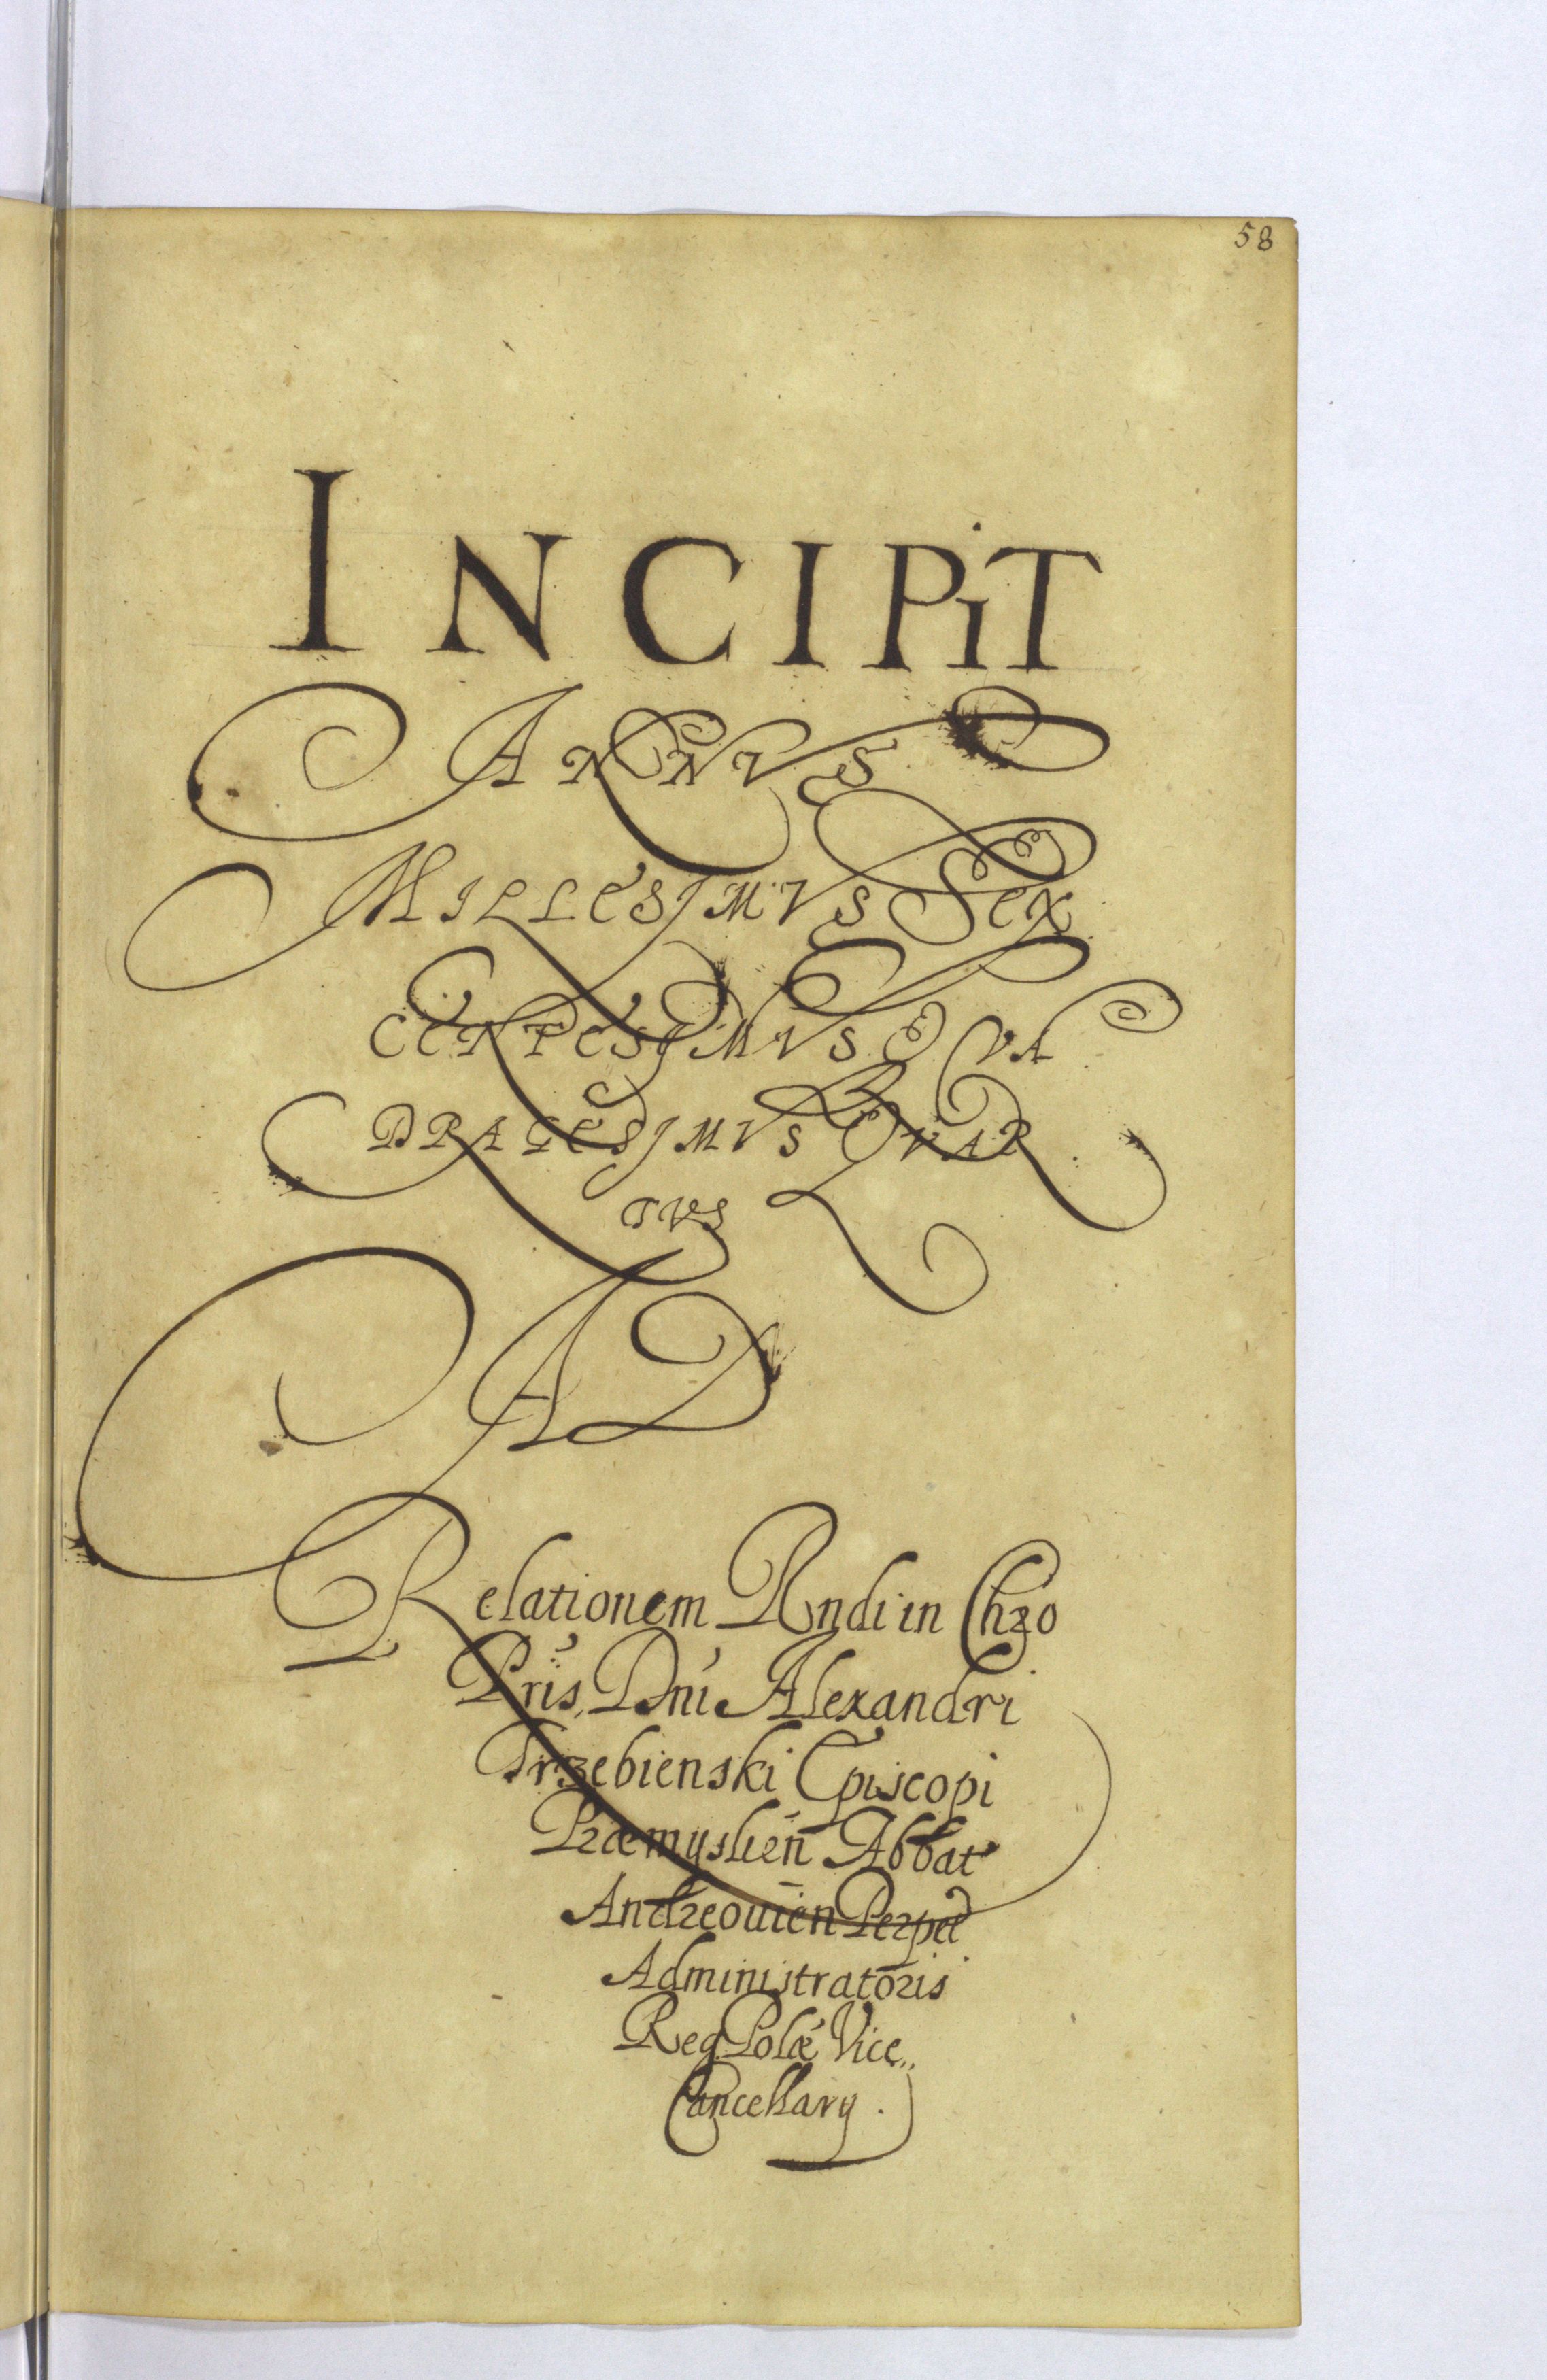 58
INCIPiT
ANNVS
MILLESIMVS SEX
CENTESIMVS QVA
DRAGESIMVS QVAR
TVS
AD
Relationem Rndi in Chro
Pris, Dni Alexandri
Trzebienski Episcopi
Præmyslien Abbat
Andreouien Perpet
Administratoris
Reg Polæ Vice„
Cancellary.